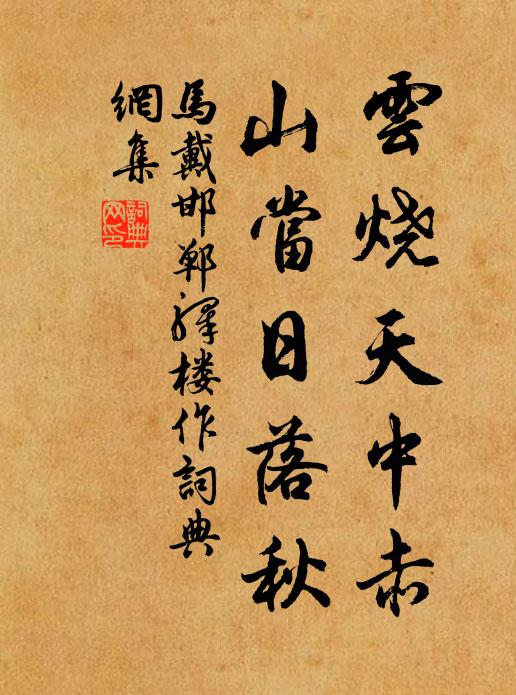 雲烧天中赤
山當日落秋
馬戴邯鄲驛楼作詞典
網集
詞典
网印